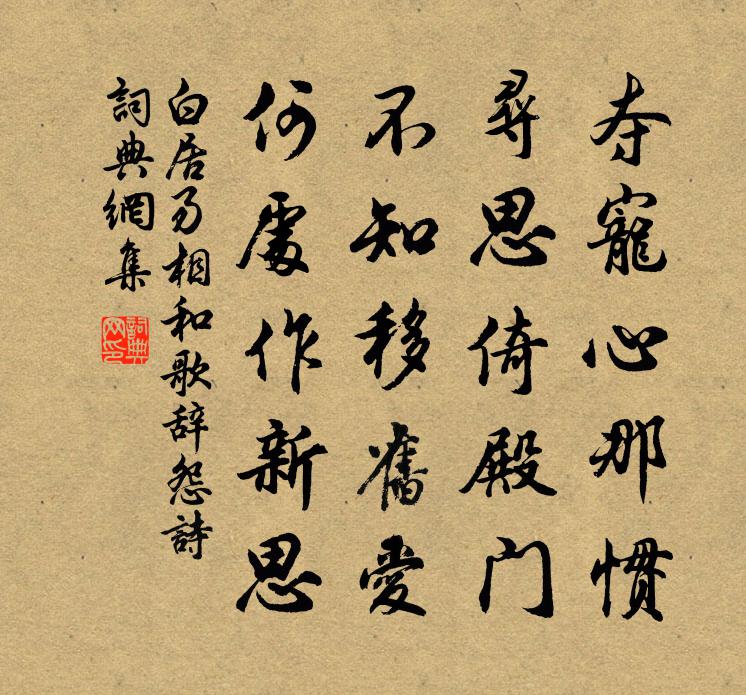 夺寵心那慣
尋思倚殿门
不知移舊愛
何處作新恩
白居易相和歌辞怨詩
詞典網集
詞典网印